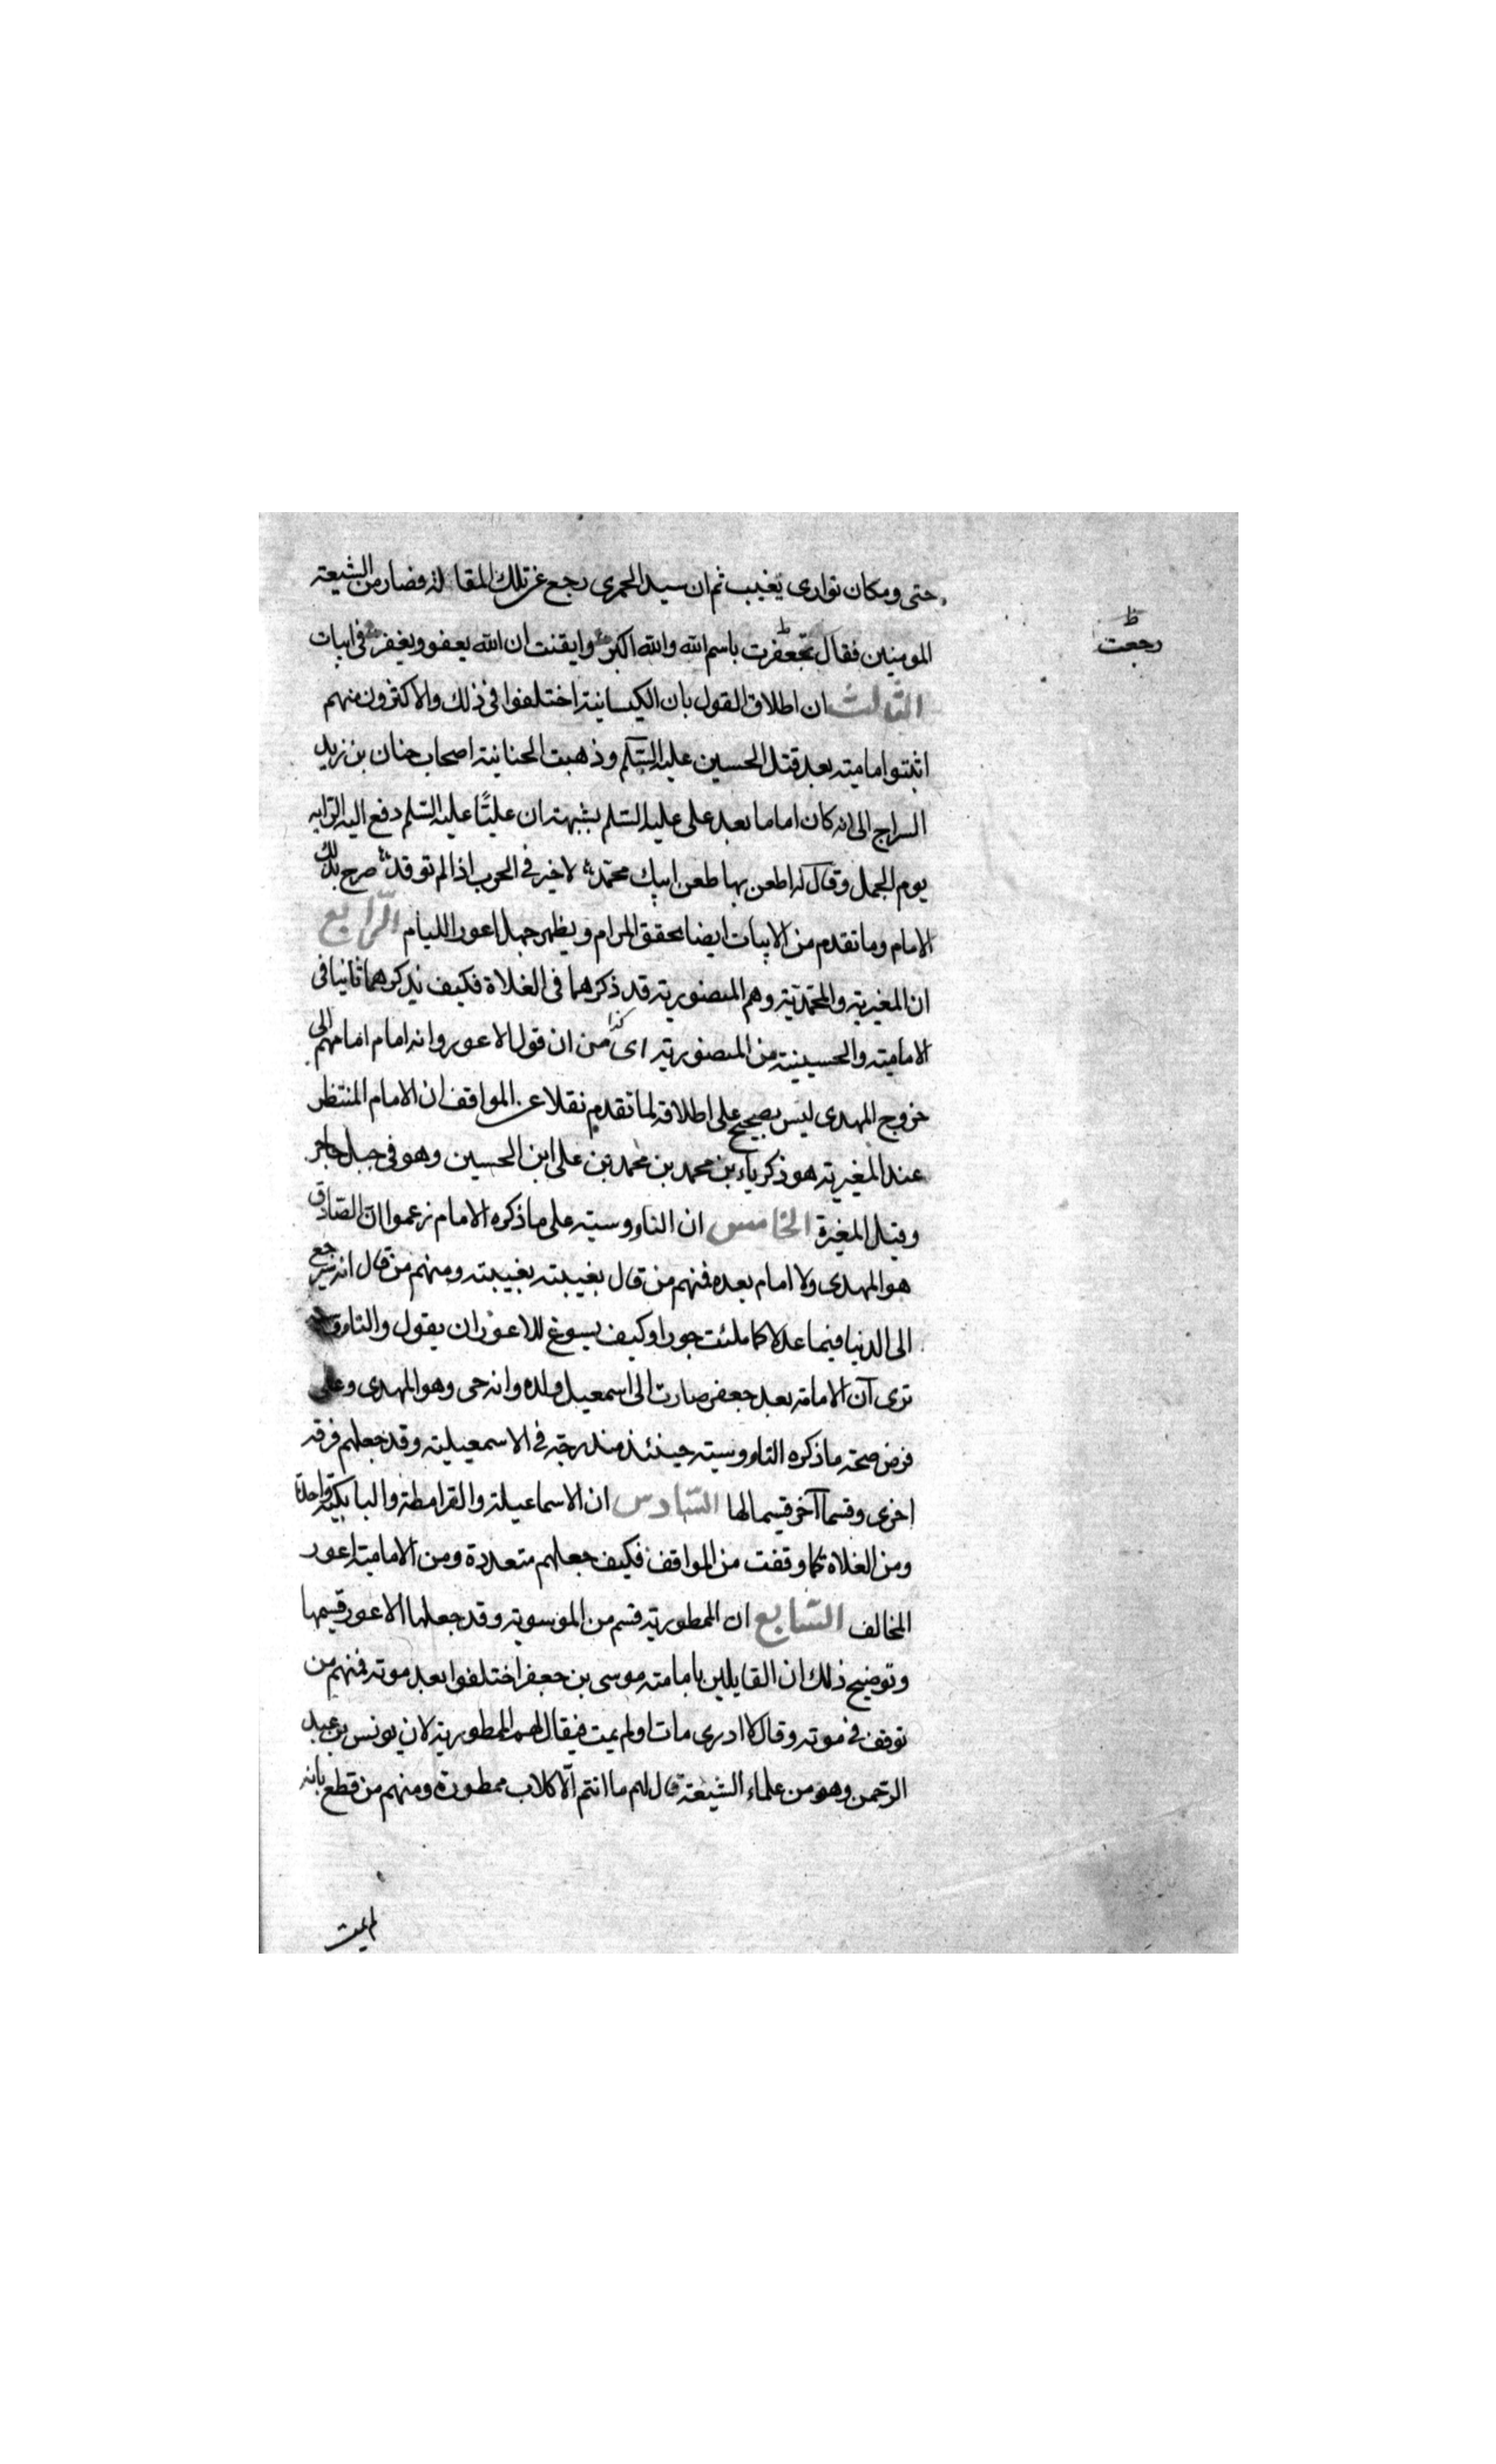 حتى ومكان توارى يغيب ثم ان سيد الحمرى رجع عن تلك المقالة فصار من الشيعة
المومنين فقال تجعفرت باسم الله والله اكبر وايقنت ان الله يعفو ويغفر فى ابيات
ظ
رجعت
الثالث ان اطلاق القول بان الكيسانية اختلفوا فى ذلك والاكثرون منهم
اثبتوا امامته بعد قتل الحسين عليه السلم وذهبت الحنانية اصحاب حنان بن زيد
السراج الى انه كان اماما بعد على عليه السلم بشبهة ان عليًا عليه السلم دفع اليه الراية
يوم الجمل وقال له اطعن بها طعن ابيك محمد لا خير فى الحرب اذا لم توقد صرح بذلك
الامام وما تقدم من الابيات ايضا يحقق المرام ويظهر جهل اعور الليام الرابع
ان المغيرية والمحمدية وهم المنصورية قد ذكرهما فى الغلاة فكيف يذكرهما ثانيا فى
الامامية والحسينية من المنصورية اى كذا من ان قول الاعور وانه امام امامهم الى
خروج المهدى ليس بصحيح على اطلاقه لما تقدم نقلا عن المواقف ان الامام المنتظر
عند المغيرية هو ذكرياء بن محمد بن محمد بن على ابن الحسين وهو فى جبل حاجر
وقيل المغيرة الخامس ان الناووسية على ما ذكره الامام زعموا ان الصادق
هو المهدى ولا امام بعده فمنهم من قال بغيبته بغيبته ومنهم من قال انه سيرجع
الى الدنيا فيما عدلا كما ملئت جورا وكيف يسوغ للاعور ان يقول والناووسية
ترى آن الامامة بعد جعفر صارت الى اسمعيل ولده وانه حى وهو المهدى وعلى
فرض صحة ما ذكره الناووسية حينئذ مندرجة فى الاسمعيلية وقد جعلهم فرقة
اخرى وقسما آخر قسيما لها السادس ان الاسماعيلة والقرامطة والبابكية واحدة
ومن الغلاة كما وقفت من المواقف فكيف جعلهم متعددة ومن الامامية اعور
المخالف السابع ان الممطورية قسم من الموسوية وقد جعلها الاعور قسيمها
وتوضيح ذلك ان القايلين بامامة موسى بن جعفر اختلفوا بعد موته فمنهم من
توقف فى موته وقال لا ادرى مات او لم يمت فيقال لهم الممطورية لان يونس بن عبد
الرحمن وهو من علماء الشيعة قال لهم ما انتم الا كلاب ممطورة ومنهم من قطع بانه
لم يمت